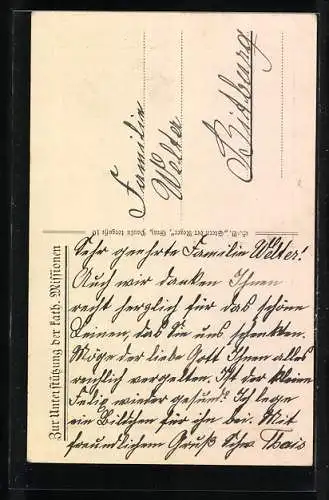 Familie
Welter
Bitburg
Zur Unterstützung der kath. Missionen
Sehr geehrte Familie Welter!
Auch wir danken Ihnen
recht herzlich für das schöne
Leinen, das Sie uns schenkten.
Möge der liebe Gott Ihnen alles
reichlich vergelten. Ist der kleine
Felix wieder gesund? Ich lege
ein Bildchen für ihn bei. Mit
freundlichem Gruß Schw. Thais